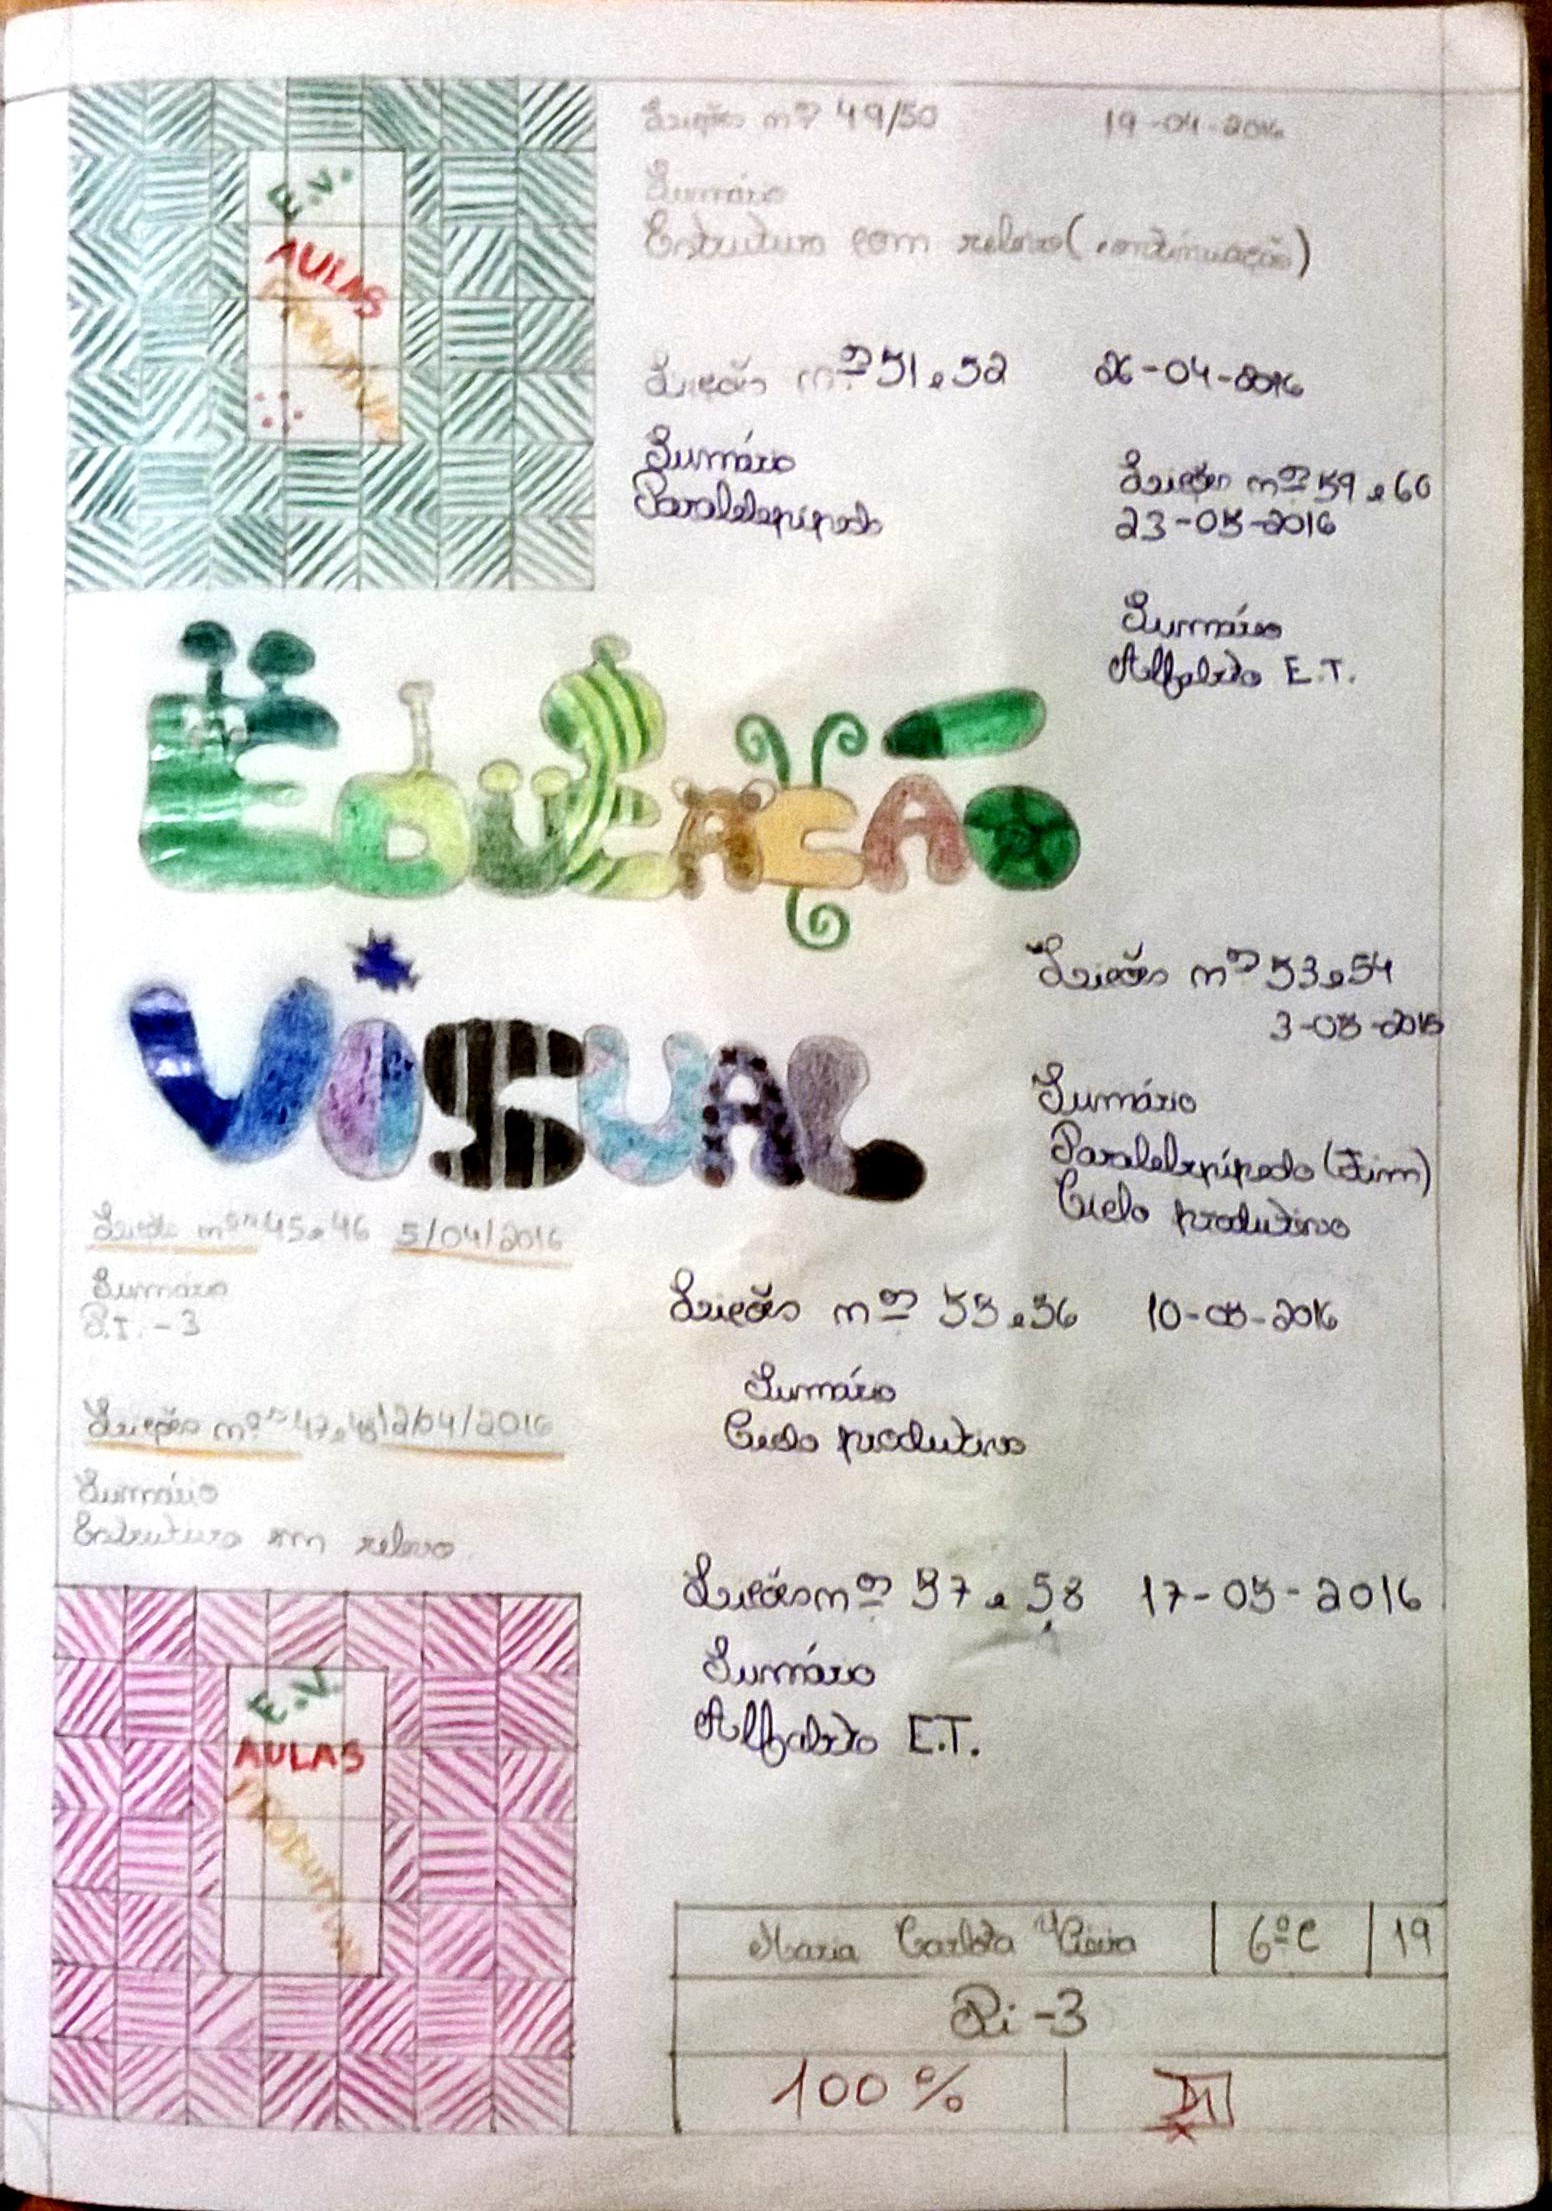 E.V.
AULAS
PRODUTIVA
Lições nºs 49/50 19-04-2016
Sumário
Estrutura com relevo (continuação)
Lições nºs 51 e 52 26-04-2016
Sumário
Paralelepípedo
Lições nºs 59 e 60
23-05-2016
Sumário
Alfabeto E.T.
EDUCAÇÃO
VISUAL
Lições nºs 53 e 54
3-05-2015
Sumário
Paralelepípedo (Fim)
Ciclo produtivo
Lições nºs 45 e 46 5/04/2016
Sumário
P.I. - 3
Lições nºs 55 e 56 10-05-2016
Sumário
Ciclo produtivo
Lições nºs 47 e 48 12/04/2016
Sumário
Estrutura em relevo
Lições nºs 57 e 58 17-05-2016
Sumário
Alfabeto E.T.
E.V.
AULAS
PRODUTIVA
Maria Carlota Vieira 6ºC 19
Pi-3
100%